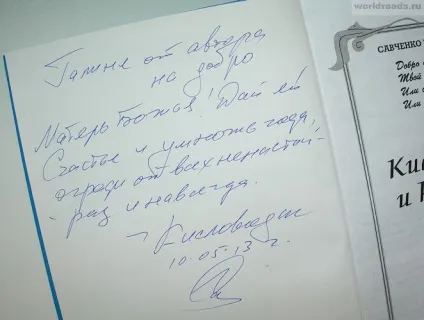 worldroads.ru
Галине от автора
на добро
Матерь Божья! Дай ей
Счастье и умножь года,
огради от всех ненастей,
- раз и навсегда.
г. Кисловодск
10.05.13 г.
САВЧЕНКО
Добро
Твой
Или
Или
Кис
и